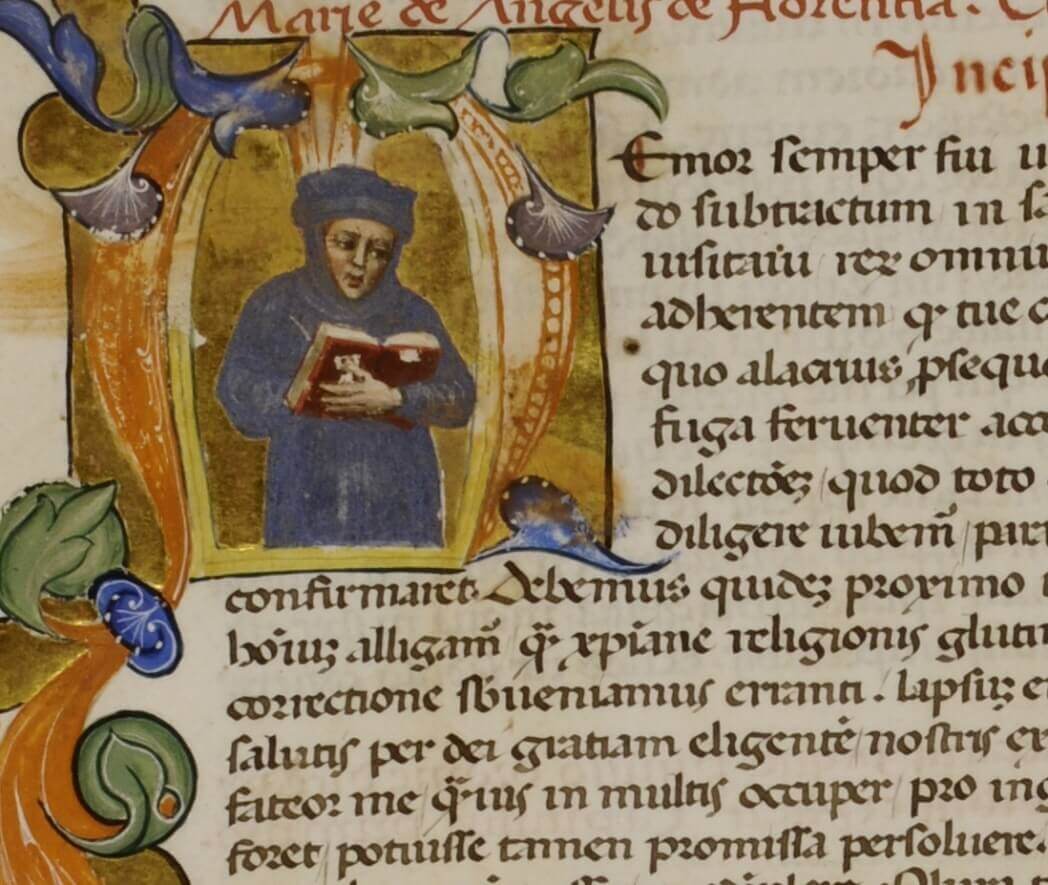 Marie de Angelis de Florentia. C
Incip
Emor semper fui u
do subtractum in sa
uisitaui rez omniu
adherentem qꝫ tue c
quo alacrius ꝓseque
fuga feruenter acce
dilectōeꝫ quod toto
diligere iubem̄ part
confirmaret. Debemus quideꝫ proximo
hoīuꝫ alligam̄ qᷓ xpīane religionis glutin
correctione sb̄ueniamus erranti. lapsuꝫ e
salutis per dei gratiam eligentē nostris
fateor me qᷓuis in multis occuper pro ing
foret potuisse tamen promissa persoluere.